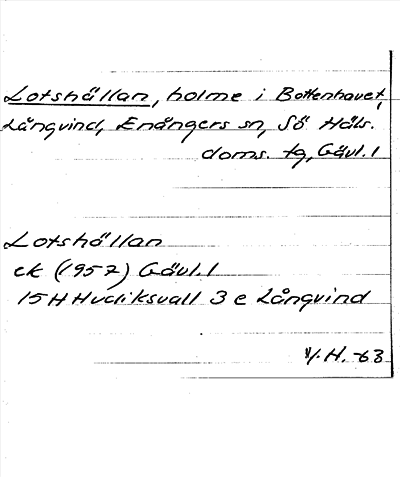 Lotshällan, holme i Bottenhavet,
Långvind, Enångers sn, Sö Häls.
doms. tg, Gävl. l
Lotshällan
ek (1957) Gävl. l
15H Hudiksvall 3 e Långvind
V.H. -63